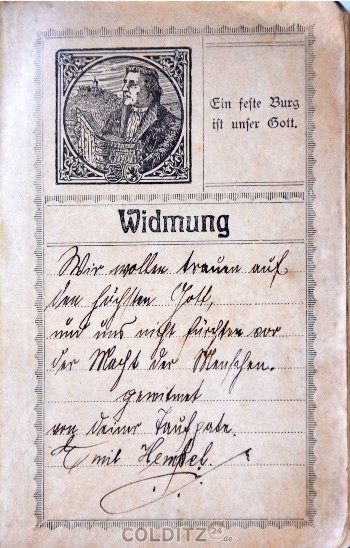 Ein feste Burg
ist unser Gott.
Widmung
Wir wollen trauen auf
den höchsten Gott,
und uns nicht fürchten vor
der Macht der Menschen.
gewitmet
von deiner Taufpate.
Emil Hempel.
COLDITZ24.de